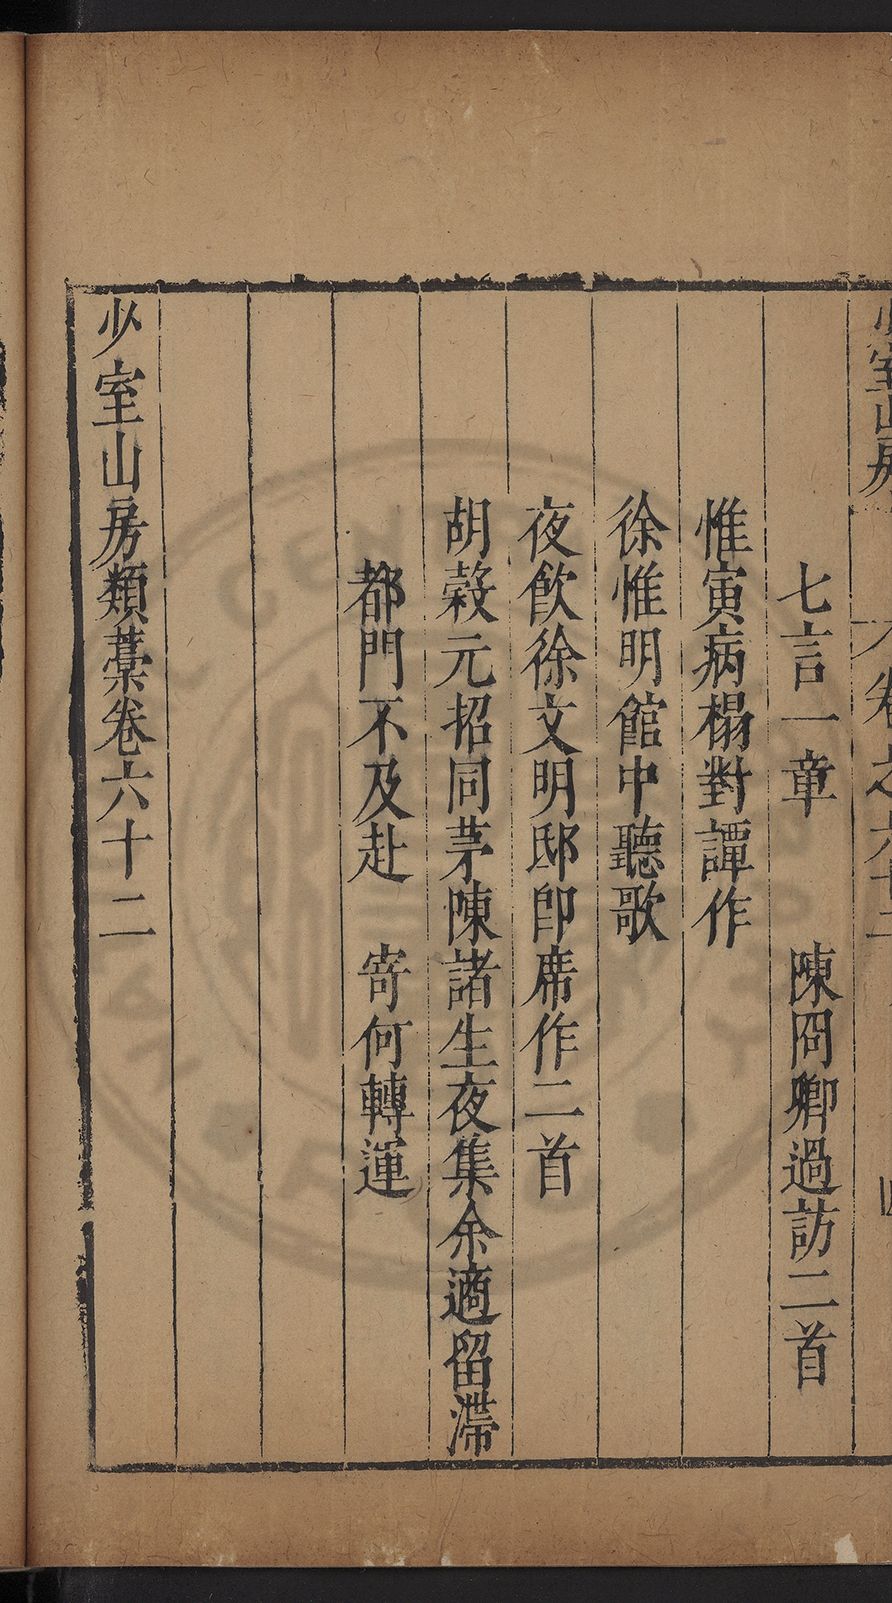 少室山房
卷之六十二
七言一章　陳冏卿過訪二首
惟寅病榻對譚作
徐惟明館中聽歌
夜飲徐文明邸卽席作二首
胡穀元招同茅陳諸生夜集余適留滯
都門不及赴　寄何轉運
少室山房類藁卷六十二